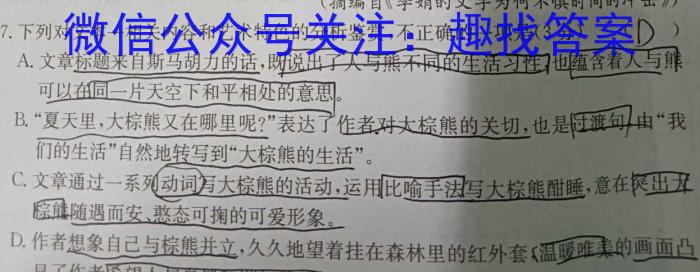 (摘编自《李娟的文字为何不惧时间的冲击》)
7.下列对 不正确的一项是( D )
微信公众号关注：趣找答案
A.文章标题来自斯马胡力的话,既说出了人与熊不同的生活习性,也蕴含着人与熊
可以在同一片天空下和平相处的意思。
B.“夏天里,大棕熊又在哪里呢?”表达了作者对大棕熊的关切,也是过渡句,由“我
们的生活”自然地转写到“大棕熊的生活”。
C.文章通过一系列动词写大棕熊的活动,运用比喻手法写大棕熊酣睡,意在突出大
棕熊随遇而安、憨态可掬的可爱形象。
D.作者想象自己与棕熊并立,久久地望着挂在森林里的红外套,温暖唯美的画面凸